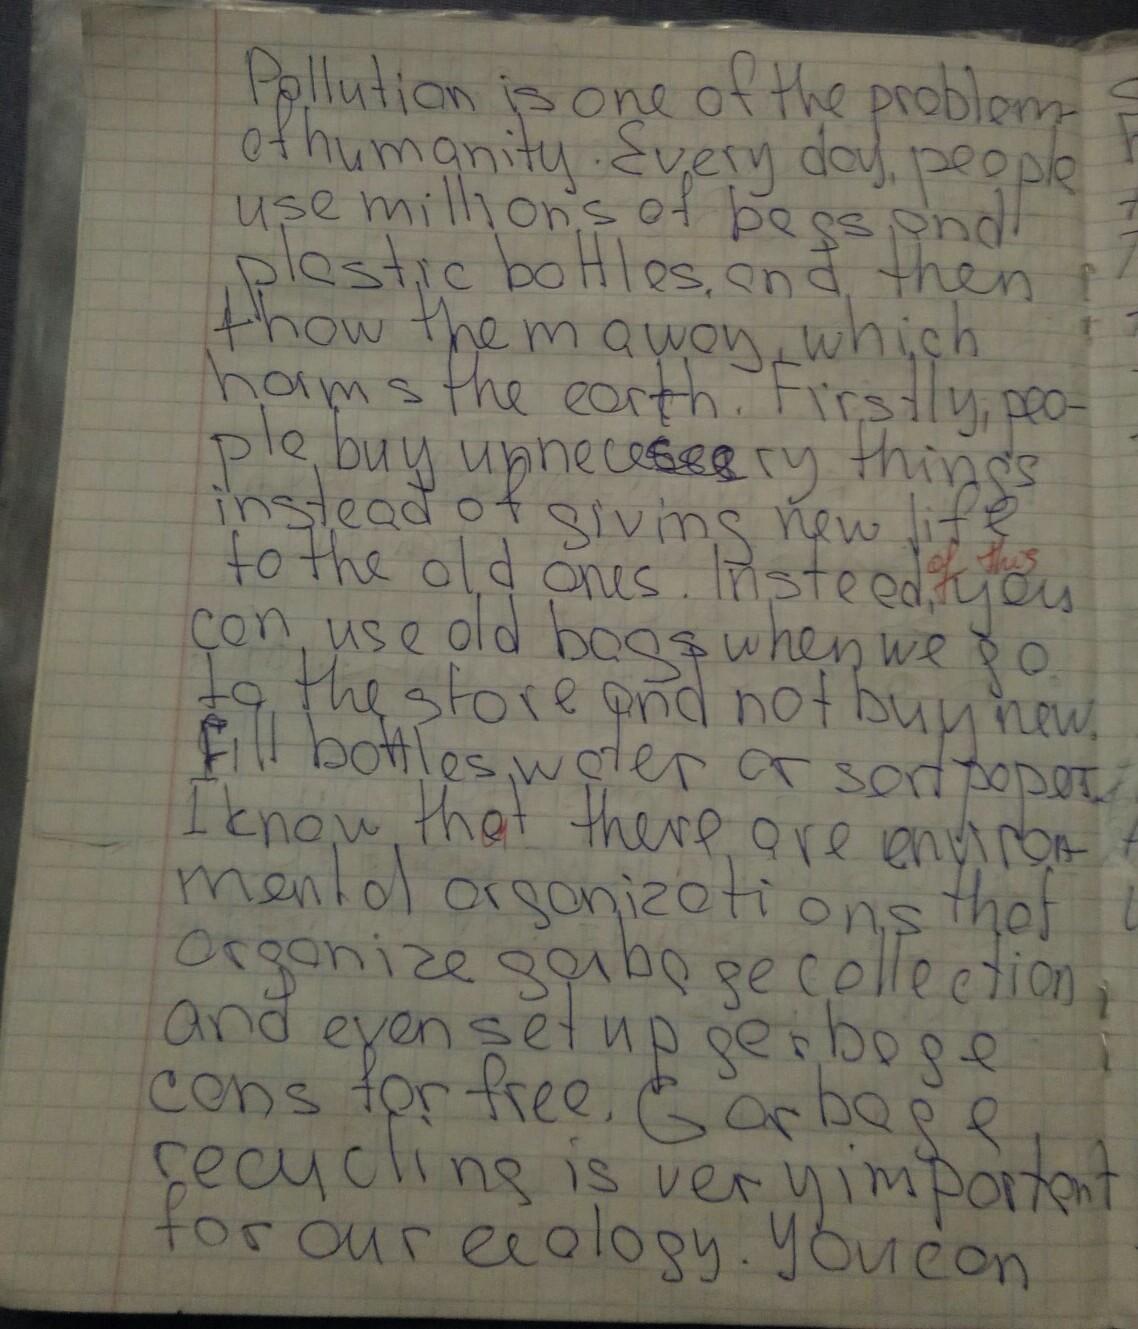 Pollution is one of the problem
of humanity. Every day, people
use millions of bags and
plastic bottles, and then
thow them away, which
harms the earth. Firstly, peo-
ple buy unnecessery things
instead of giving new life
to the old ones. Insteed, of this you
can use old bags when we go
to the store and not buy new.
Fill bottles water or sort paper.
I know that there are environ-
mental organizations that
organize garbage collection
and even set up garbage
cans for free. Garbage
recycling is very important
for our ecology. You can